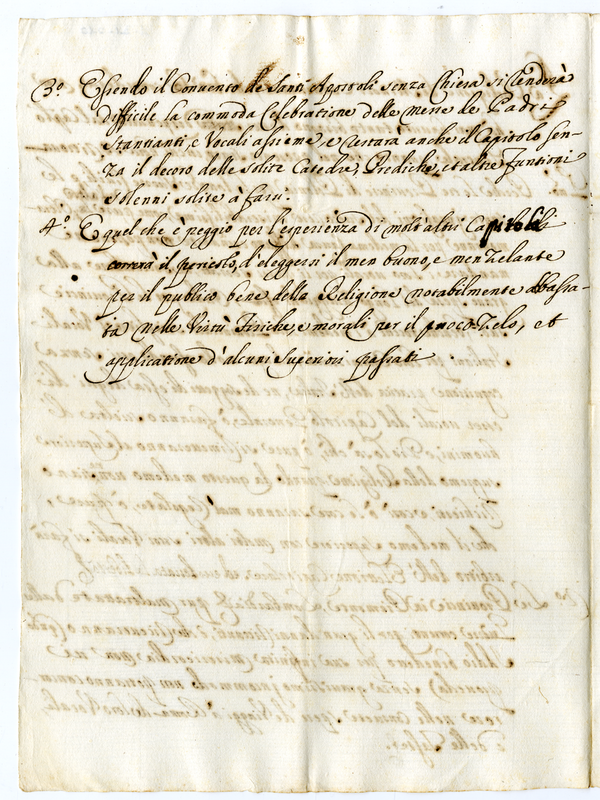 3º Essendo il Convento de Santi Apostoli senza Chiesa si renderà
difficile la commoda Celebratione delle messe de Padri
stantianti, e Vocali assieme, e restarà anche il Capitolo sen-
za il decoro delle solite Catedre, Prediche, et altre funtioni
solenni solite à farsi.
4º. E quel che è peggio per l'esperienza di molt'altri Capitoli
correrà il pericolo, d'eleggersi il men buono, e men zelante
per il publico bene della Religione notabilmente abbassa-
ta nelle Virtù fisiche, e morali per il poco zelo, et
applicatione d'alcuni Superiori passati